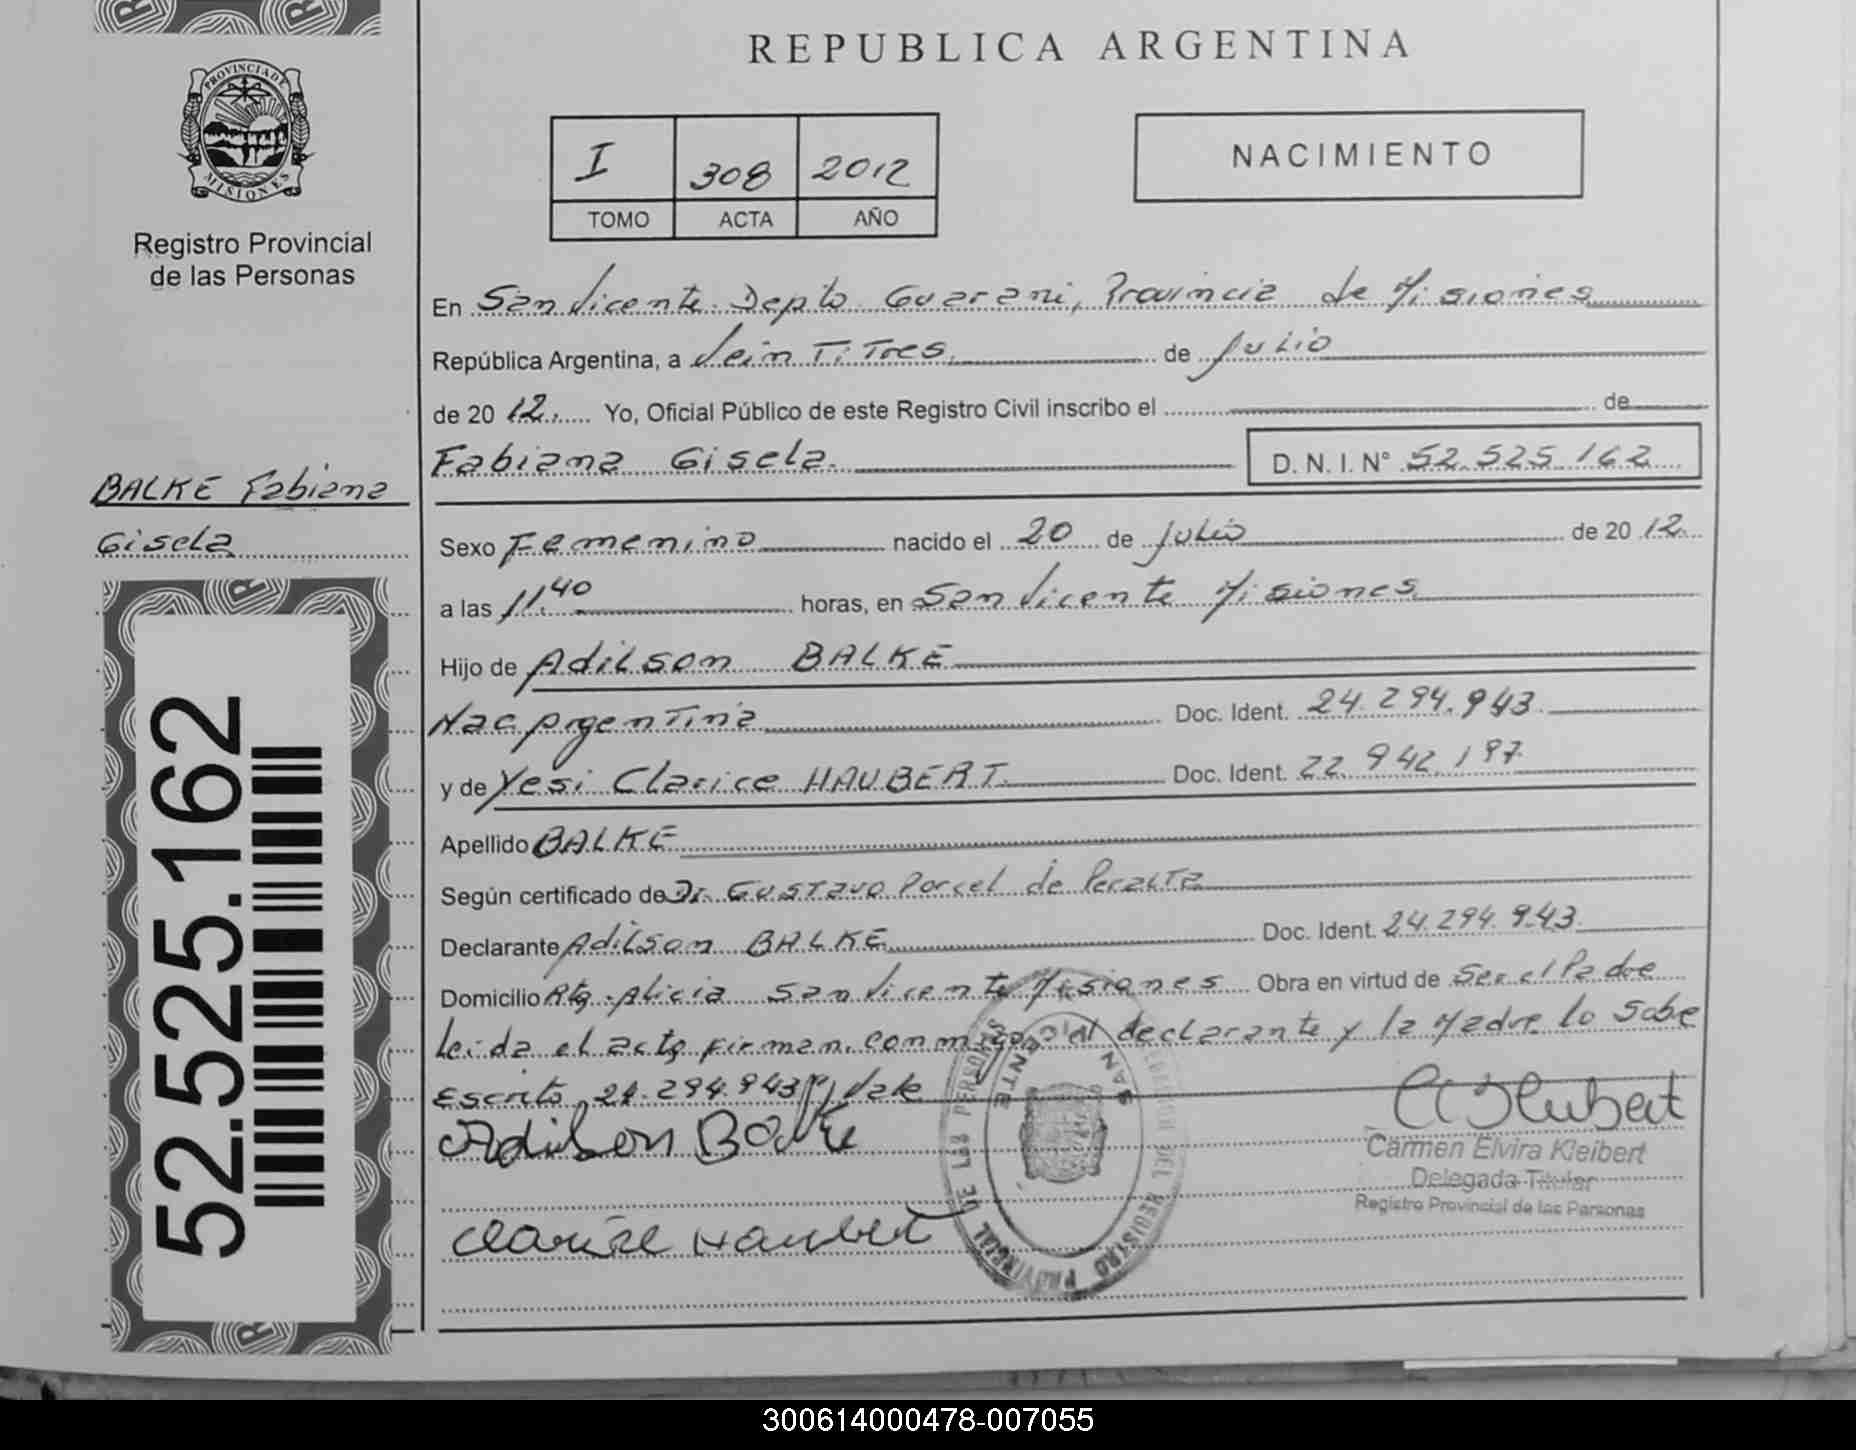 REPUBLICA ARGENTINA
PROVINCIA DE
MISIONES
Registro Provincial
de las Personas
I 308 2012
TOMO ACTA AÑO
NACIMIENTO
En San Vicente Depto Guarani, Provincia de Misiones
República Argentina, a Vein Ti Tres de Julio
de 20 12 Yo, Oficial Público de este Registro Civil inscribo el de
Fabiana Gisela. D.N.I.N° 52.525.162
BALKE Fabiana
Gisela
52.525.162
Sexo Femenino nacido el 20 de Julio de 20 12
a las 11,40 horas, en San Vicente Misiones
Hijo de Adilson BALKE
Nac Argentina Doc. Ident. 24.294.943
y de Yesi Clarice HAUBERT Doc. Ident. 22.942.197
Apellido BALKE
Según certificado de Dr. Gustavo Porcel de Peralta
Declarante Adilson BALKE Doc. Ident. 24.294.943
Domicilio Pto. Alicia San Vicente Misiones Obra en virtud de Ser el Padre
Leida el acta firman conmigo el declarante y la Madre lo Sobe
Escrito 24.294.943 Vale
Adilson Balke
Clarice Haubert
SAN VICENTE
REGISTRO PROVINCIAL DE LAS PERSONAS
Carmen Elvira Kleibert
Delegada Titular
Registro Provincial de las Personas
300614000478-007055